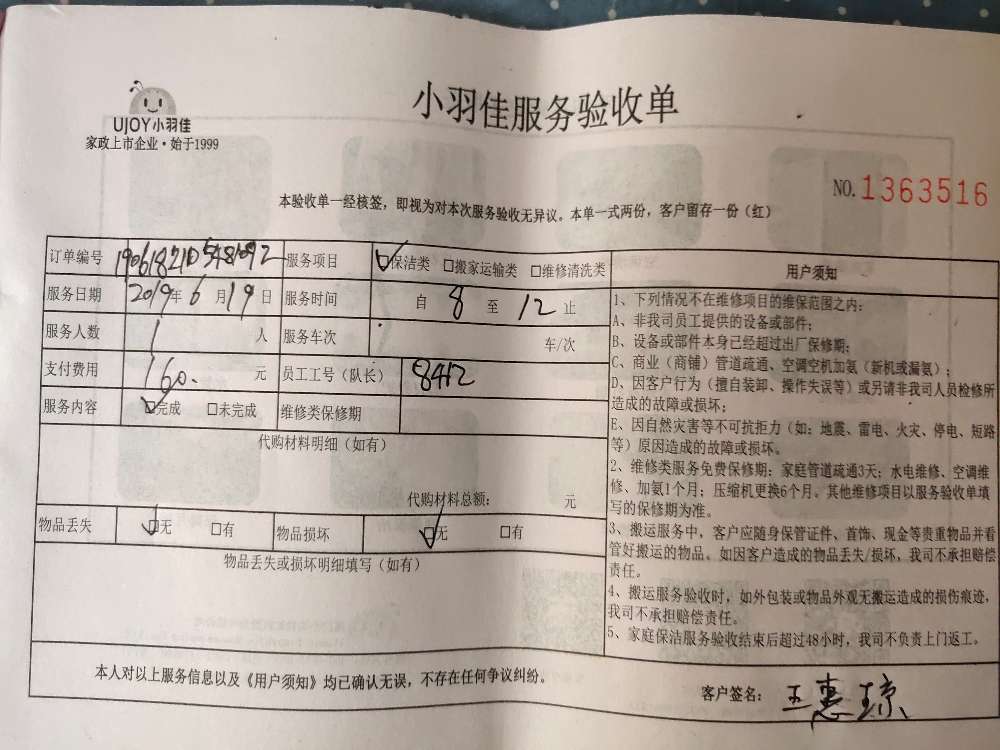 UJOY小羽佳
家政上市企业·始于1999
小羽佳服务验收单
NO.1363516
本验收单一经核签，即视为对本次服务验收无异议。本单一式两份，客户留存一份（红）
订单编号 服务项目 ☑保洁类 □搬家运输类 □维修清洗类
服务日期 2019年6月19日 服务时间 自 8 至 12 止
服务人数 1 人 服务车次 车/次
支付费用 160. 元 员工工号（队长） 8412
服务内容 ☑完成 □未完成 维修类保修期
代购材料明细（如有）
代购材料总额： 元
物品丢失 ☑无 □有 物品损坏 ☑无 □有
物品丢失或损坏明细填写（如有）
用户须知
1、下列情况不在维修项目的维保范围之内：
A、非我司员工提供的设备或部件；
B、设备或部件本身已经超过出厂保修期；
C、商业（商铺）管道疏通、空调空机加氨（新机或漏氨）；
D、因客户行为（擅自装卸、操作失误等）或另请非我司人员检修所
造成的故障或损坏；
E、因自然灾害等不可抗拒力（如：地震、雷电、火灾、停电、短路
等）原因造成的故障或损坏。
2、维修类服务免费保修期：家庭管道疏通3天；水电维修、空调维
修、加氨1个月；压缩机更换6个月。其他维修项目以服务验收单填
写的保修期为准。
3、搬运服务中，客户应随身保管证件、首饰、现金等贵重物品并看
管好搬运的物品。如因客户造成的物品丢失/损坏，我司不承担赔偿
责任。
4、搬运服务验收时，如外包装或物品外观无搬运造成的损伤痕迹，
我司不承担赔偿责任。
5、家庭保洁服务验收结束后超过48小时，我司不负责上门返工。
本人对以上服务信息以及《用户须知》均已确认无误，不存在任何争议纠纷。
客户签名：王惠琼